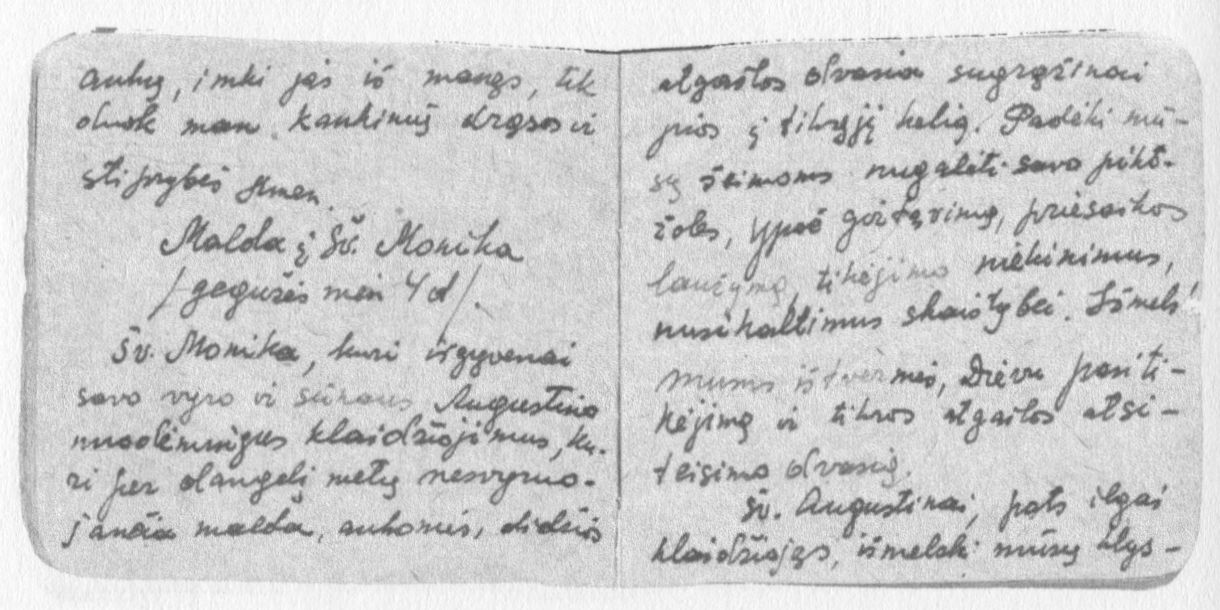 aukų, imki jas iš manęs, tik
duok man kankinių drąsos ir
stiprybės Amen.
Malda į Šv. Monika
/gegužės mėn 4 d/.
Šv. Monika, kuri išgyvenai
savo vyro ir sūnaus Augustino
nuodėmingus klaidžiojimus, ku-
ri per daugelį metų nesvyruo-
jančia malda, aukomis, didžios
atgailos dvasia sugrąžinai
juos į tikrąjį kelią. Padėki mū-
sų šeimoms nugalėti savo piktž-
žoles, ypač girtavimą, priesaikos
laužymą, tikėjimo niekinimus,
nusikaltimus skaistybei. Išmelsk
mums ištvermės, Dievu pasiti-
kėjimą ir tikros atgailos atsi-
teisimo dvasią.
Šv. Augustinai, pats ilgai
klaidžiojęs, išmelski mūsų klys-